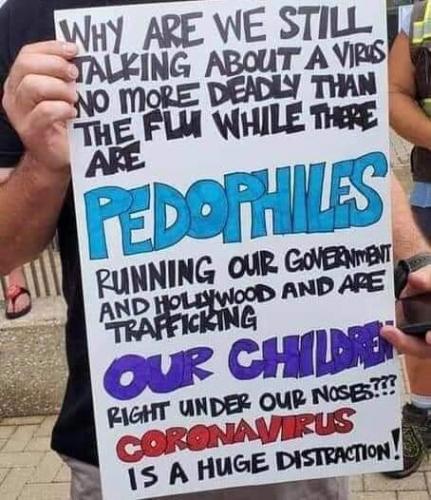 WHY ARE WE STILL
TALKING ABOUT A VIRUS
NO MORE DEADLY THAN
THE FLU WHILE THERE
ARE
PEDOPHILES
RUNNING OUR GOVERNMENT
AND HOLLYWOOD AND ARE
TRAFFICKING
OUR CHILDREN
RIGHT UNDER OUR NOSES???
CORONAVIRUS
IS A HUGE DISTRACTION!